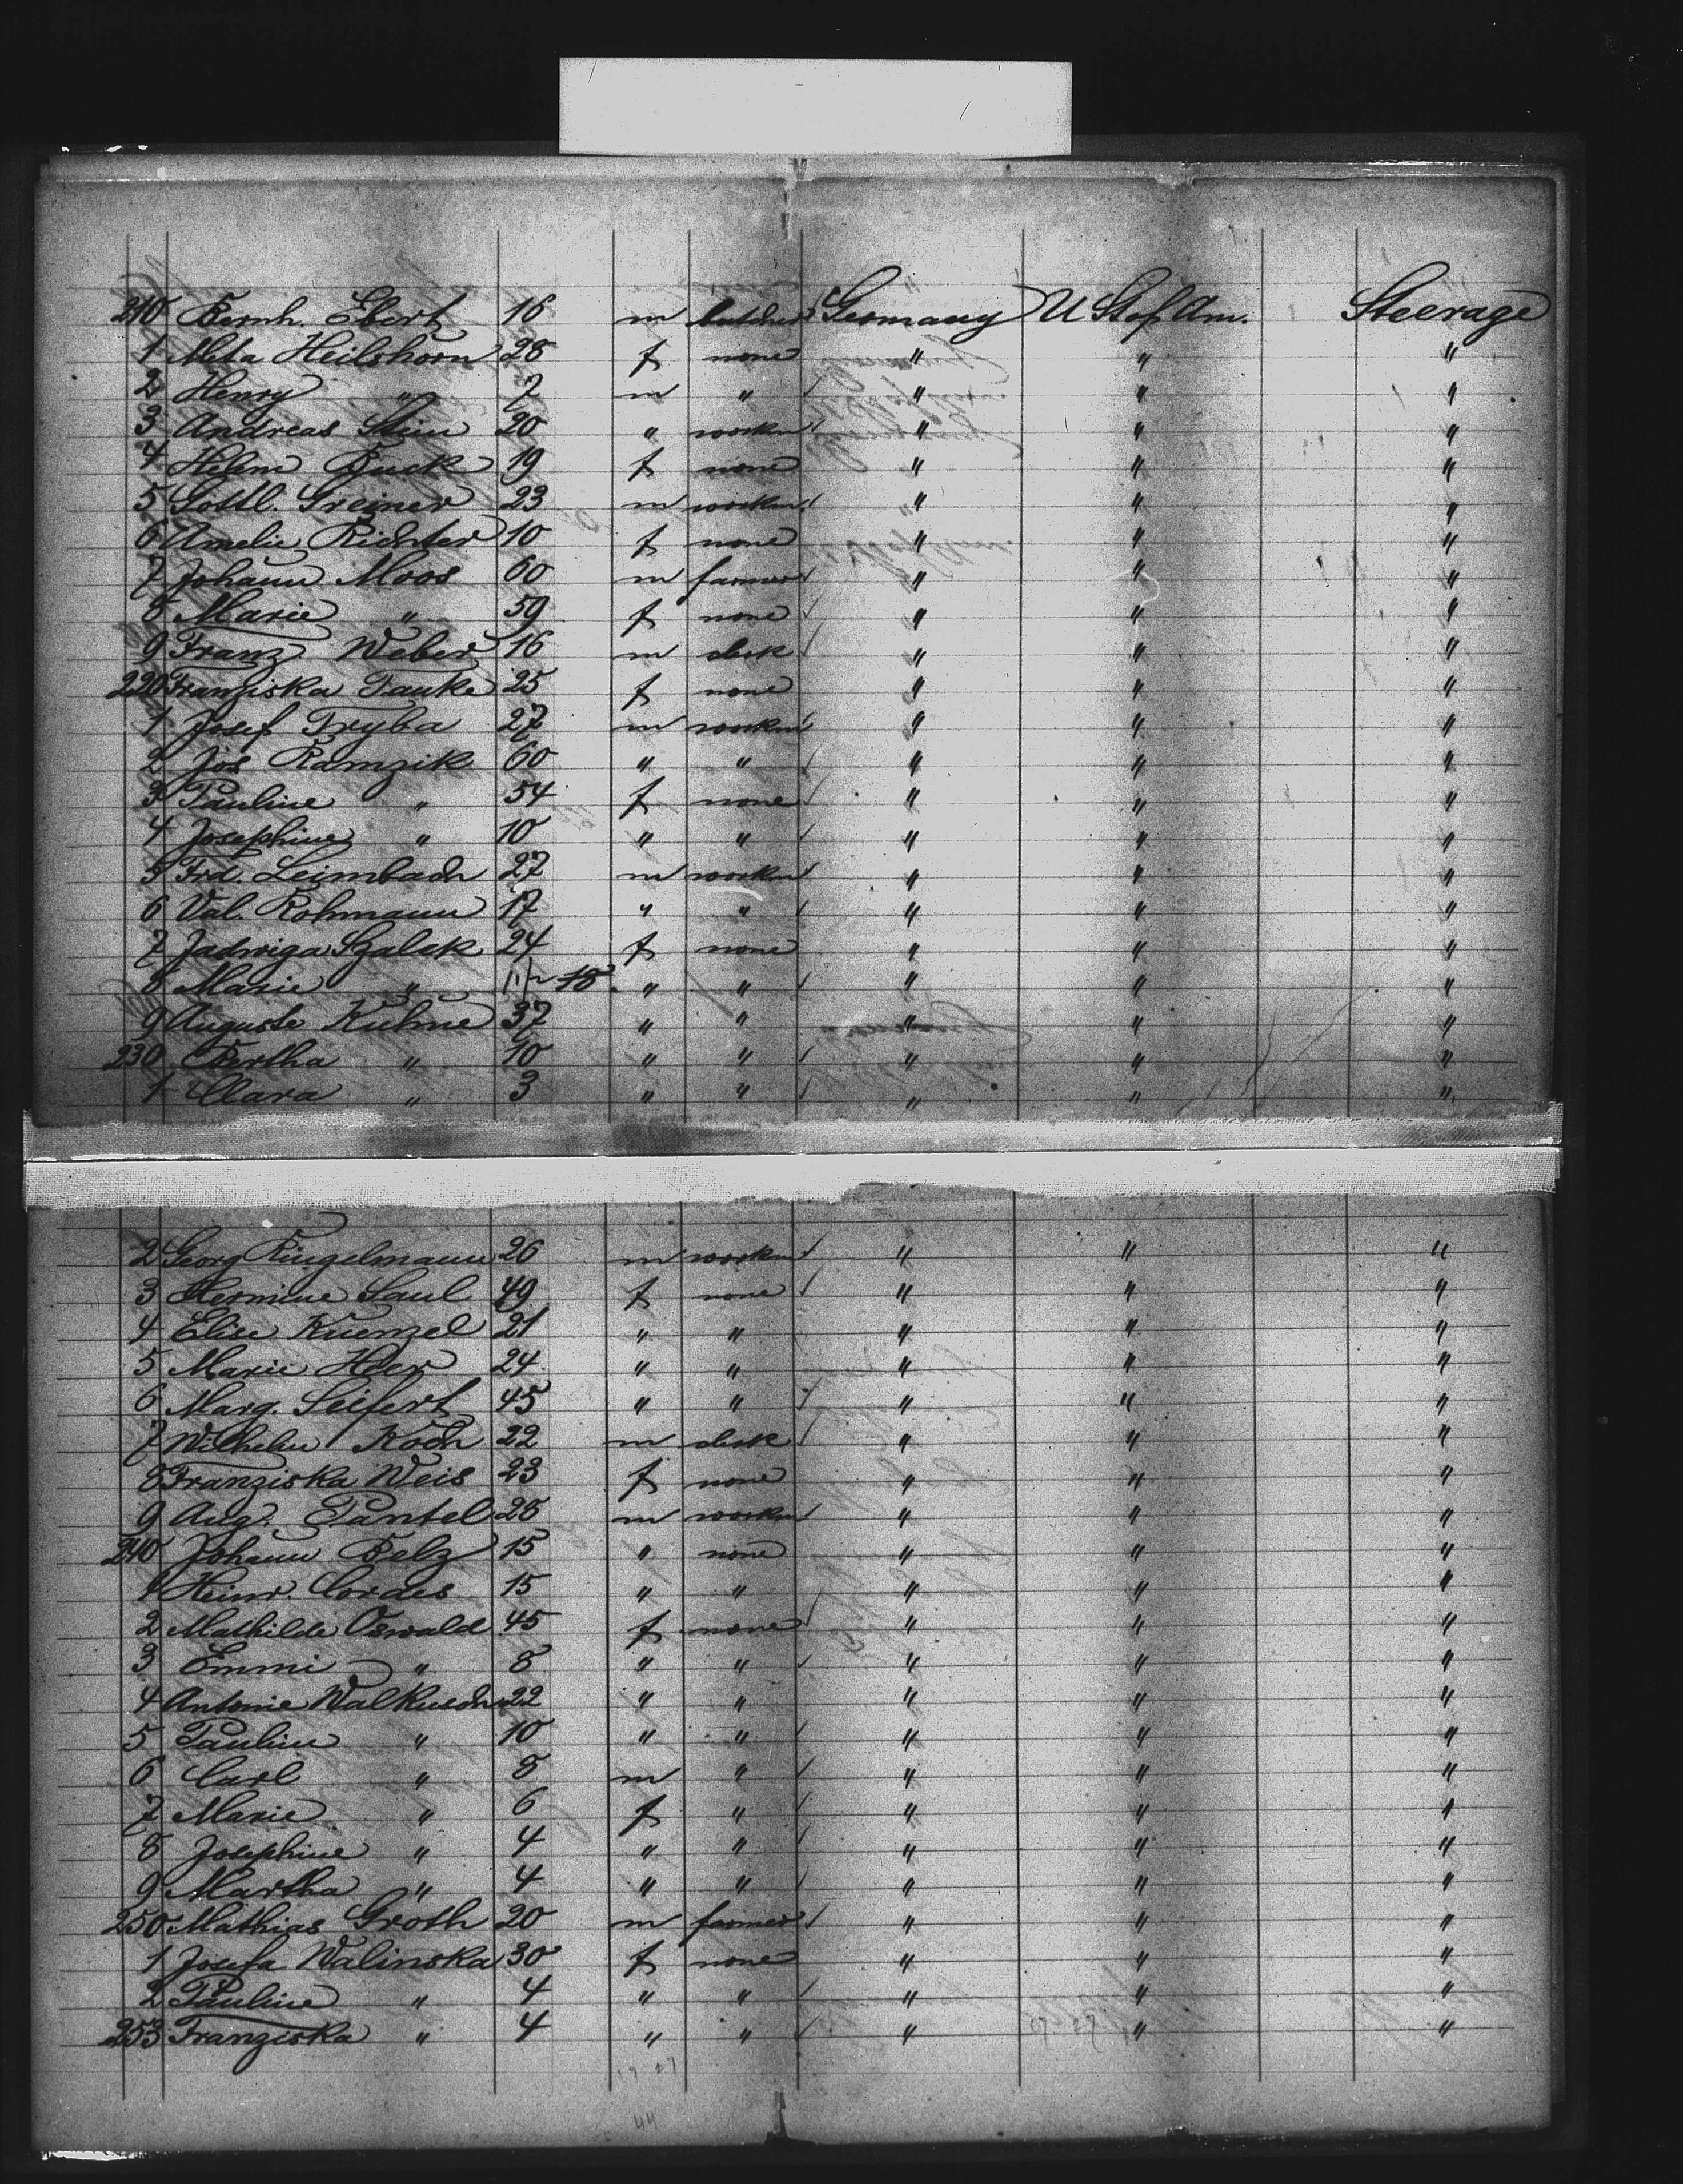 210 Bernh. Ebert 16 m butcher Germany U St of Am. Steerage
1 Meta Heilshorn 28 f none " " "
2 Henry " 7 m " " " "
3 Andreas Stein 20 " workm " " "
4 Helm Buck 19 f none " " "
5 Gottl. Greiner 23 m workm " " "
6 Amelie Richter 10 f none " " "
7 Johann Moos 60 m farmer " " "
8 Marie " 59 f none " " "
9 Franz Weber 16 m clerk " " "
220 Franziska Tauke 25 f none " " "
1 Josef Tryba 27 m workm " " "
2 Jos Ramzik 60 " " " " "
3 Pauline " 54 f none " " "
4 Josephine " 10 " " " " "
5 Frd. Leimbach 27 m workm " " "
6 Val. Rohmann 17 " " " " "
7 Jadwiga Szalek 24 f none " " "
8 Marie " " " " " "
9 Auguste Kuhne 37 " " " " "
230 Bertha " 10 " " " " "
1 Clara " 3 " " " " "
2 Georg Ringelmann 26 m workm " " "
3 Hermine Saul 49 f none " " "
4 Elise Kuenzel 21 " " " " "
5 Marie Hoer 24 " " " " "
6 Marg. Seifert 45 " " " " "
7 Wilhelm Koch 22 m clerk " " "
8 Franziska Weis 23 f none " " "
9 Aug. Pantel 28 m workm " " "
240 Johann Belz 15 " none " " "
1 Heinr. Cordes 15 " " " " "
2 Mathilde Oswald 45 f none " " "
3 Emmi " 8 " " " " "
4 Antonie Walkusch 22 " " " " "
5 Pauline " 10 " " " " "
6 Carl " 8 m " " " "
7 Marie " 6 f " " " "
8 Josephine " 4 " " " " "
9 Martha " 4 " " " " "
250 Mathias Groth 20 m farmer " " "
1 Josefa Walinska 30 f none " " "
2 Pauline " 4 " " " " "
253 Franziska " 4 " " " " "
44